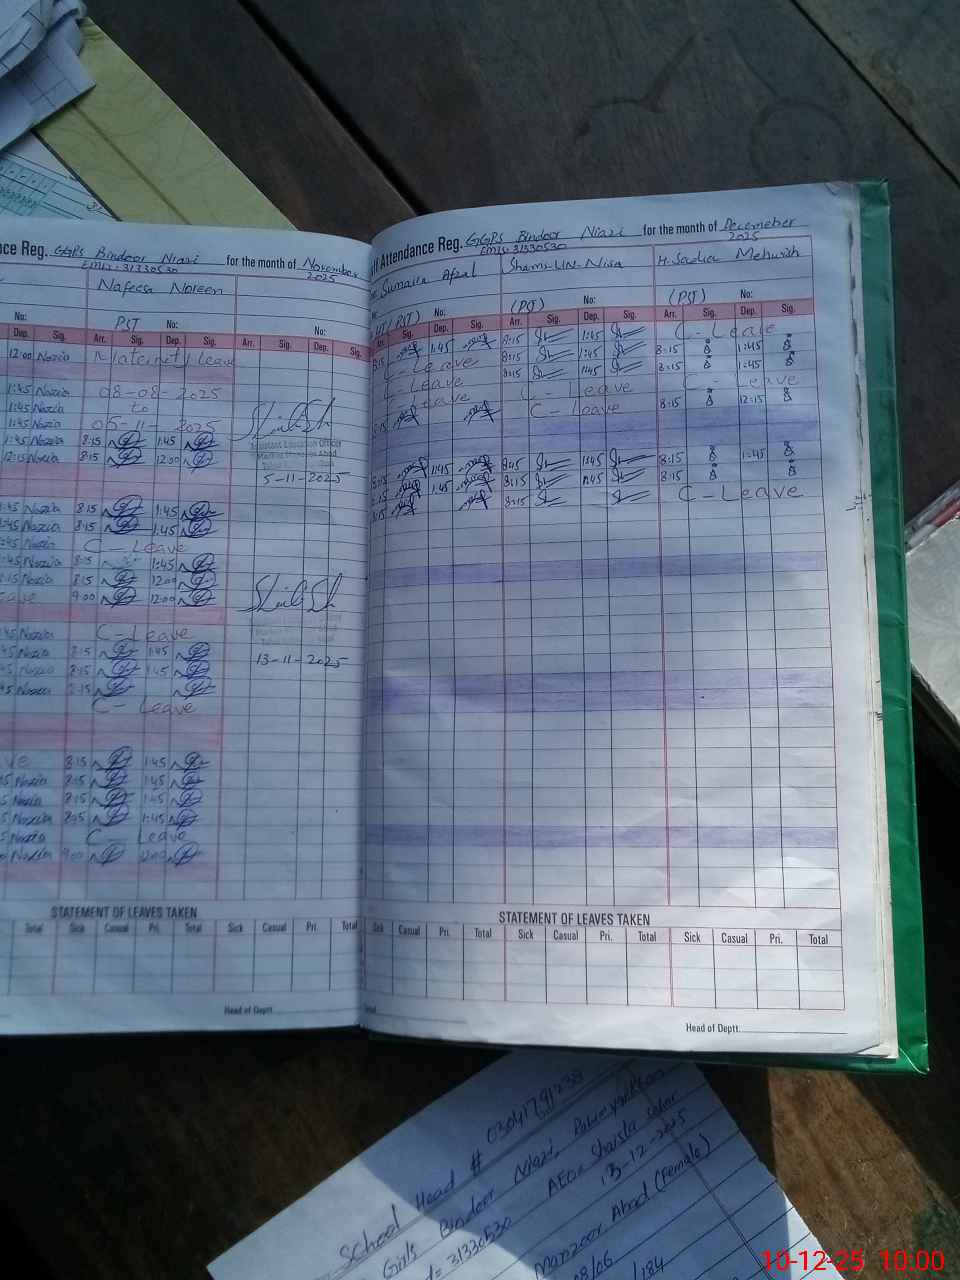 nce Reg. GGPS Bindoor Niazi for the month of November
EMIS: 31330530 2025
Nafeesa Noreen
PST
No: No: No:
Dep. Sig. Arr. Sig. Dep. Sig. Arr. Sig. Dep. Sig.
12:00 Nazia Maternity Leave
1:45 Nazia 08-08-2025
1:45 Nazia to
1:45 Nazia 05-11-2025
1:45 Nazia 8:15 1:45
12:15 Nazia 8:15 12:00
Assistant Education Officer
5-11-2025
1:45 Nazia 8:15 1:45
1:45 Nazia 8:15 1:45
:45 Nazia C-Leave
:45 Nazia 8:15 1:45
:15 Nazia 8:15 12:00
eave 9:00 12:00
:45 Nazia C-Leave
:45 Nazia 8:15 1:45
:45 Nazia 8:15 1:45
45 Nazia 8:15
C-Leave
13-11-2025
ve 8:15 1:45
5 Nazia 8:15 1:45
5 Nazia 8:15 1:45
5 Nazia 8:45 1:45
5 Nazia C-Leave
Nazia 9:00 12:00
STATEMENT OF LEAVES TAKEN
Total Sick Casual Pri. Total Sick Casual Pri. Total
Head of Deptt.
ff Attendance Reg. GGPS Bindoor Niazi for the month of Decemeber
EMIS: 31330530 2025
Sumaira Afzal Shams-UN-Nisa H. Sadia Mehwish
(PST) (PST) (PST)
No: No: No:
Arr. Sig. Dep. Sig. Arr. Sig. Dep. Sig. Arr. Sig. Dep. Sig.
8:15 1:45 8:15 1:45 C-Leave
C-Leave 8:15 1:45 8:15 1:45
C-Leave 8:15 1:45 8:15 1:45
C-Leave C-Leave C-Leave
8:15 C-Leave 8:15 12:15
8:15 1:45 8:45 1:45 8:15 1:45
8:15 1:45 8:15 1:45 8:15
8:15 8:15 C-Leave
STATEMENT OF LEAVES TAKEN
Sick Casual Pri. Total Sick Casual Pri. Total Sick Casual Pri. Total
Head of Deptt.
School Head # 03041791238
Girls Bindoor Niazi,
= 31330530 AEO = Shaista
13-12-2025
Manzoor Abad (Female)
08/06 /184
10-12-25 10:00